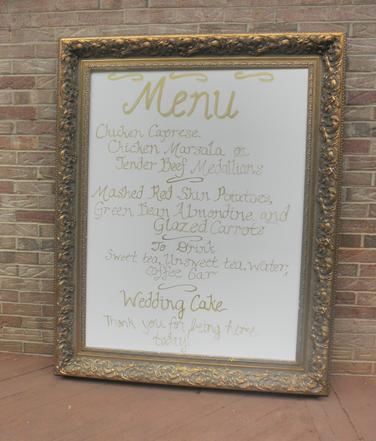 Menu
Chicken Caprese
Chicken Marsala or
Tender Beef Medallions
Mashed Red Skin Potatoes,
Green Bean Almondine and
Glazed Carrots
To Drink
Sweet tea, Unsweet tea, Water,
Coffee bar
Wedding Cake
Thank you for being here
today!